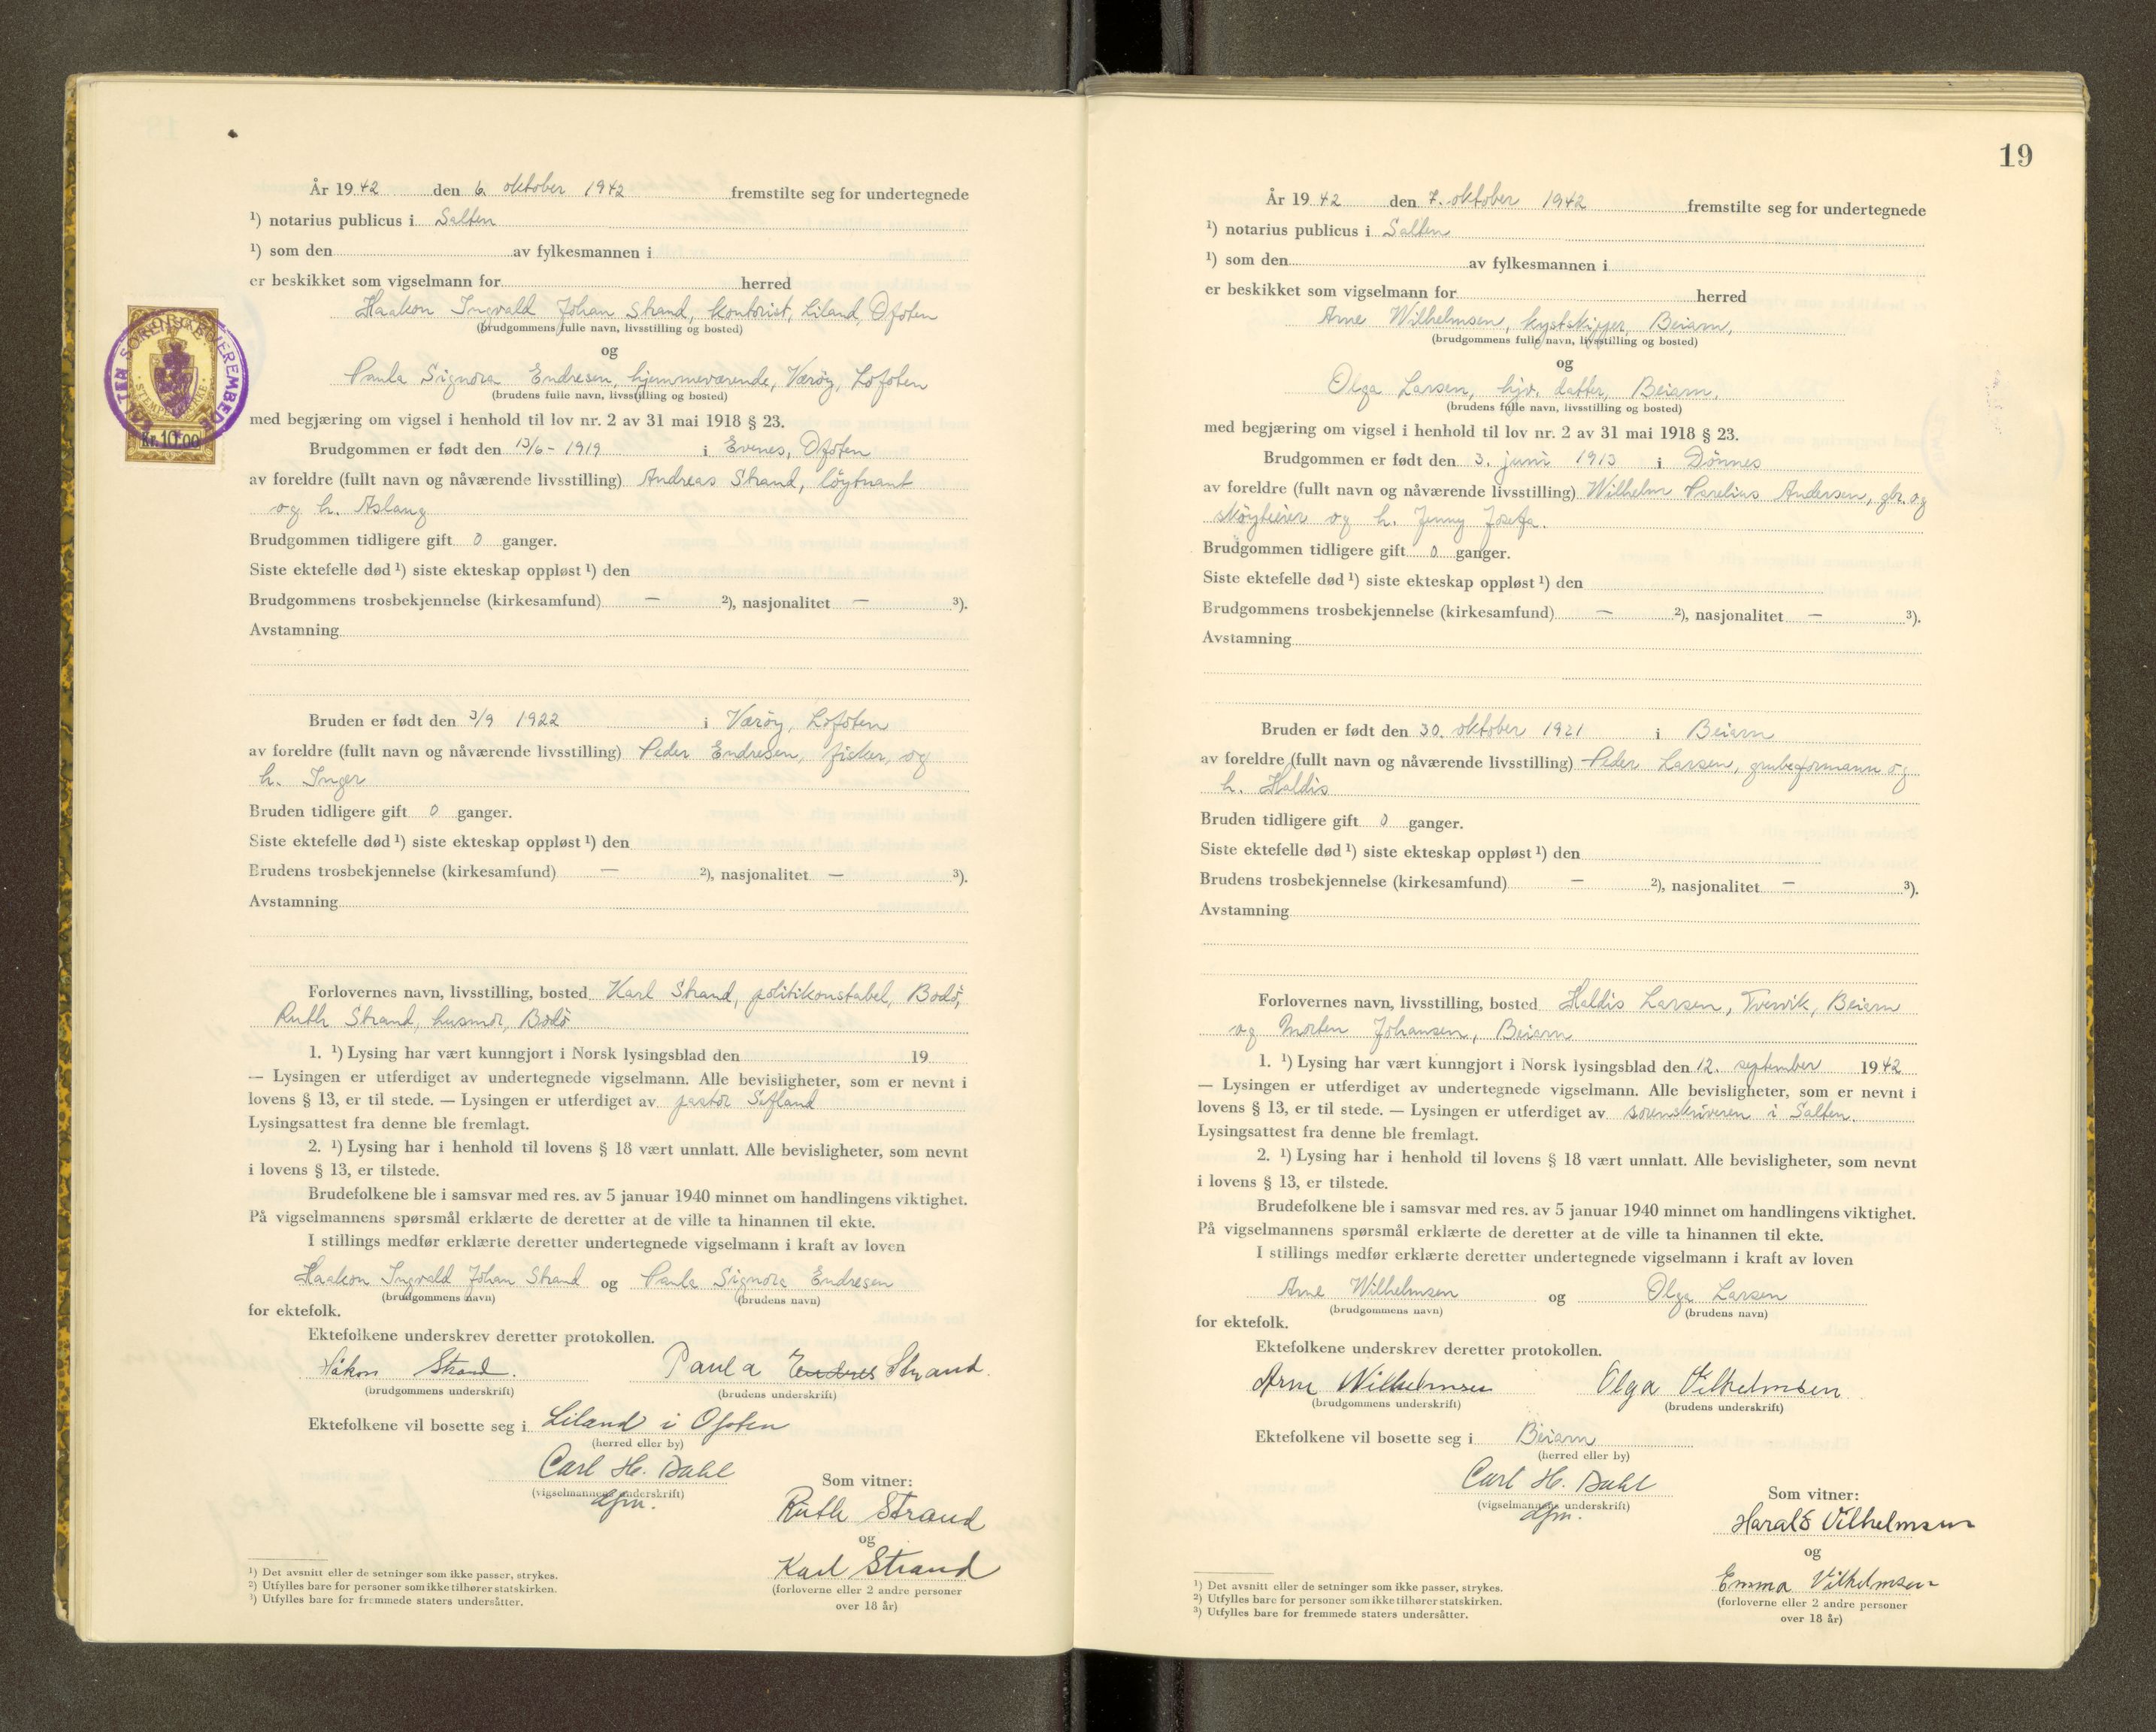 År 1942 den 6. oktober 1942 fremstilte seg for undertegnede
¹) notarius publicus i Salten
¹) som den av fylkesmannen i
er beskikket som vigselmann for herred
Haakon Ingvald Johan Strand, kontorist, Liland, Ofoten
(brudgommens fulle navn, livsstilling og bosted)
og
Paula Signora Endresen, hjemmeværende, Værøy, Lofoten
(brudens fulle navn, livsstilling og bosted)
SALTEN SORENSKRIVEREMBEDE
STEMPELMERKE
Kr. 10.00
med begjæring om vigsel i henhold til lov nr. 2 av 31 mai 1918 § 23.
Brudgommen er født den 13/6 - 1919 i Evenes, Ofoten
av foreldre (fullt navn og nåværende livsstilling) Andreas Strand, löytnant
og h. Aslaug
Brudgommen tidligere gift 0 ganger.
Siste ektefelle død ¹) siste ekteskap oppløst ¹) den
Brudgommens trosbekjennelse (kirkesamfund) — ²), nasjonalitet — ³).
Avstamning
Bruden er født den 3/9 1922 i Værøy, Lofoten
av foreldre (fullt navn og nåværende livsstilling) Peder Endresen, fisker, og
h. Inger
Bruden tidligere gift 0 ganger.
Siste ektefelle død ¹) siste ekteskap oppløst ¹) den
Brudens trosbekjennelse (kirkesamfund) — ²), nasjonalitet — ³).
Avstamning
Forlovernes navn, livsstilling, bosted Karl Strand, politikonstabel, Bodö,
Ruth Strand, husmor, Bodö
1. ¹) Lysing har vært kunngjort i Norsk lysingsblad den 19
— Lysingen er utferdiget av undertegnede vigselmann. Alle bevisligheter, som er nevnt i
lovens § 13, er til stede. — Lysingen er utferdiget av pastor Sefland
Lysingsattest fra denne ble fremlagt.
2. ¹) Lysing har i henhold til lovens § 18 vært unnlatt. Alle bevisligheter, som nevnt
i lovens § 13, er tilstede.
Brudefolkene ble i samsvar med res. av 5 januar 1940 minnet om handlingens viktighet.
På vigselmannens spørsmål erklærte de deretter at de ville ta hinannen til ekte.
I stillings medfør erklærte deretter undertegnede vigselmann i kraft av loven
Haakon Ingvald Johan Strand og Paula Signora Endresen
(brudgommens navn) (brudens navn)
for ektefolk.
Ektefolkene underskrev deretter protokollen.
Håkon Strand. Paula Endres Strand.
(brudgommens underskrift) (brudens underskrift)
Ektefolkene vil bosette seg i Liland i Ofoten
(herred eller by)
Carl H. Dahl
(vigselmannens underskrift)
dfm.
Som vitner:
Ruth Strand
og
Karl Strand
(forloverne eller 2 andre personer
over 18 år)
¹) Det avsnitt eller de setninger som ikke passer, strykes.
²) Utfylles bare for personer som ikke tilhører statskirken.
³) Utfylles bare for fremmede staters undersåtter.
19
År 1942 den 7. oktober 1942 fremstilte seg for undertegnede
¹) notarius publicus i Salten
¹) som den av fylkesmannen i
er beskikket som vigselmann for herred
Arne Wilhelmsen, kystskipper, Beiarn,
(brudgommens fulle navn, livsstilling og bosted)
og
Olga Larsen, hjv. datter, Beiarn.
(brudens fulle navn, livsstilling og bosted)
med begjæring om vigsel i henhold til lov nr. 2 av 31 mai 1918 § 23.
Brudgommen er født den 3. juni 1913 i Dönnes
av foreldre (fullt navn og nåværende livsstilling) Wilhelm Parelius Andersen, gbr. og
skøyteeier og h. Jenny Josefa.
Brudgommen tidligere gift 0 ganger.
Siste ektefelle død ¹) siste ekteskap oppløst ¹) den
Brudgommens trosbekjennelse (kirkesamfund) — ²), nasjonalitet — ³).
Avstamning
Bruden er født den 30. oktober 1921 i Beiarn
av foreldre (fullt navn og nåværende livsstilling) Peder Larsen, grubeformann og
h. Haldis
Bruden tidligere gift 0 ganger.
Siste ektefelle død ¹) siste ekteskap oppløst ¹) den
Brudens trosbekjennelse (kirkesamfund) — ²), nasjonalitet — ³).
Avstamning
Forlovernes navn, livsstilling, bosted Haldis Larsen, Tvervik, Beiarn
og Morten Johansen, Beiarn
1. ¹) Lysing har vært kunngjort i Norsk lysingsblad den 12. september 1942
— Lysingen er utferdiget av undertegnede vigselmann. Alle bevisligheter, som er nevnt i
lovens § 13, er til stede. — Lysingen er utferdiget av sorenskriveren i Salten.
Lysingsattest fra denne ble fremlagt.
2. ¹) Lysing har i henhold til lovens § 18 vært unnlatt. Alle bevisligheter, som nevnt
i lovens § 13, er tilstede.
Brudefolkene ble i samsvar med res. av 5 januar 1940 minnet om handlingens viktighet.
På vigselmannens spørsmål erklærte de deretter at de ville ta hinannen til ekte.
I stillings medfør erklærte deretter undertegnede vigselmann i kraft av loven
Arne Wilhelmsen og Olga Larsen
(brudgommens navn) (brudens navn)
for ektefolk.
Ektefolkene underskrev deretter protokollen.
Arne Wilhelmsen Olga Vilhelmsen
(brudgommens underskrift) (brudens underskrift)
Ektefolkene vil bosette seg i Beiarn
(herred eller by)
Carl H. Dahl
(vigselmannens underskrift)
dfm.
Som vitner:
Harald Vilhelmsen
og
Emma Vilhelmsen
(forloverne eller 2 andre personer
over 18 år)
¹) Det avsnitt eller de setninger som ikke passer, strykes.
²) Utfylles bare for personer som ikke tilhører statskirken.
³) Utfylles bare for fremmede staters undersåtter.